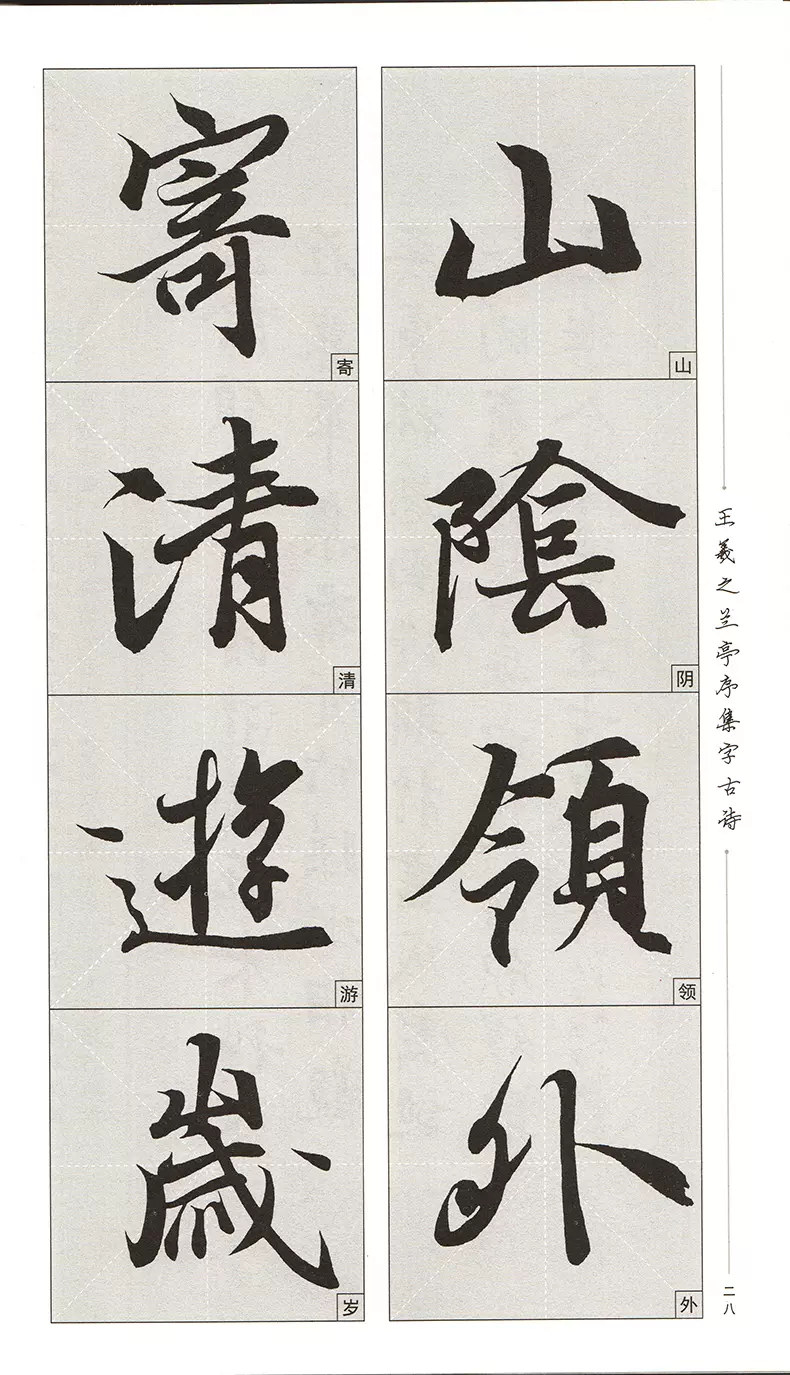 山陰領外
山阴领外
寄清遊歲
寄清游岁
王羲之兰亭序集字古诗
二八